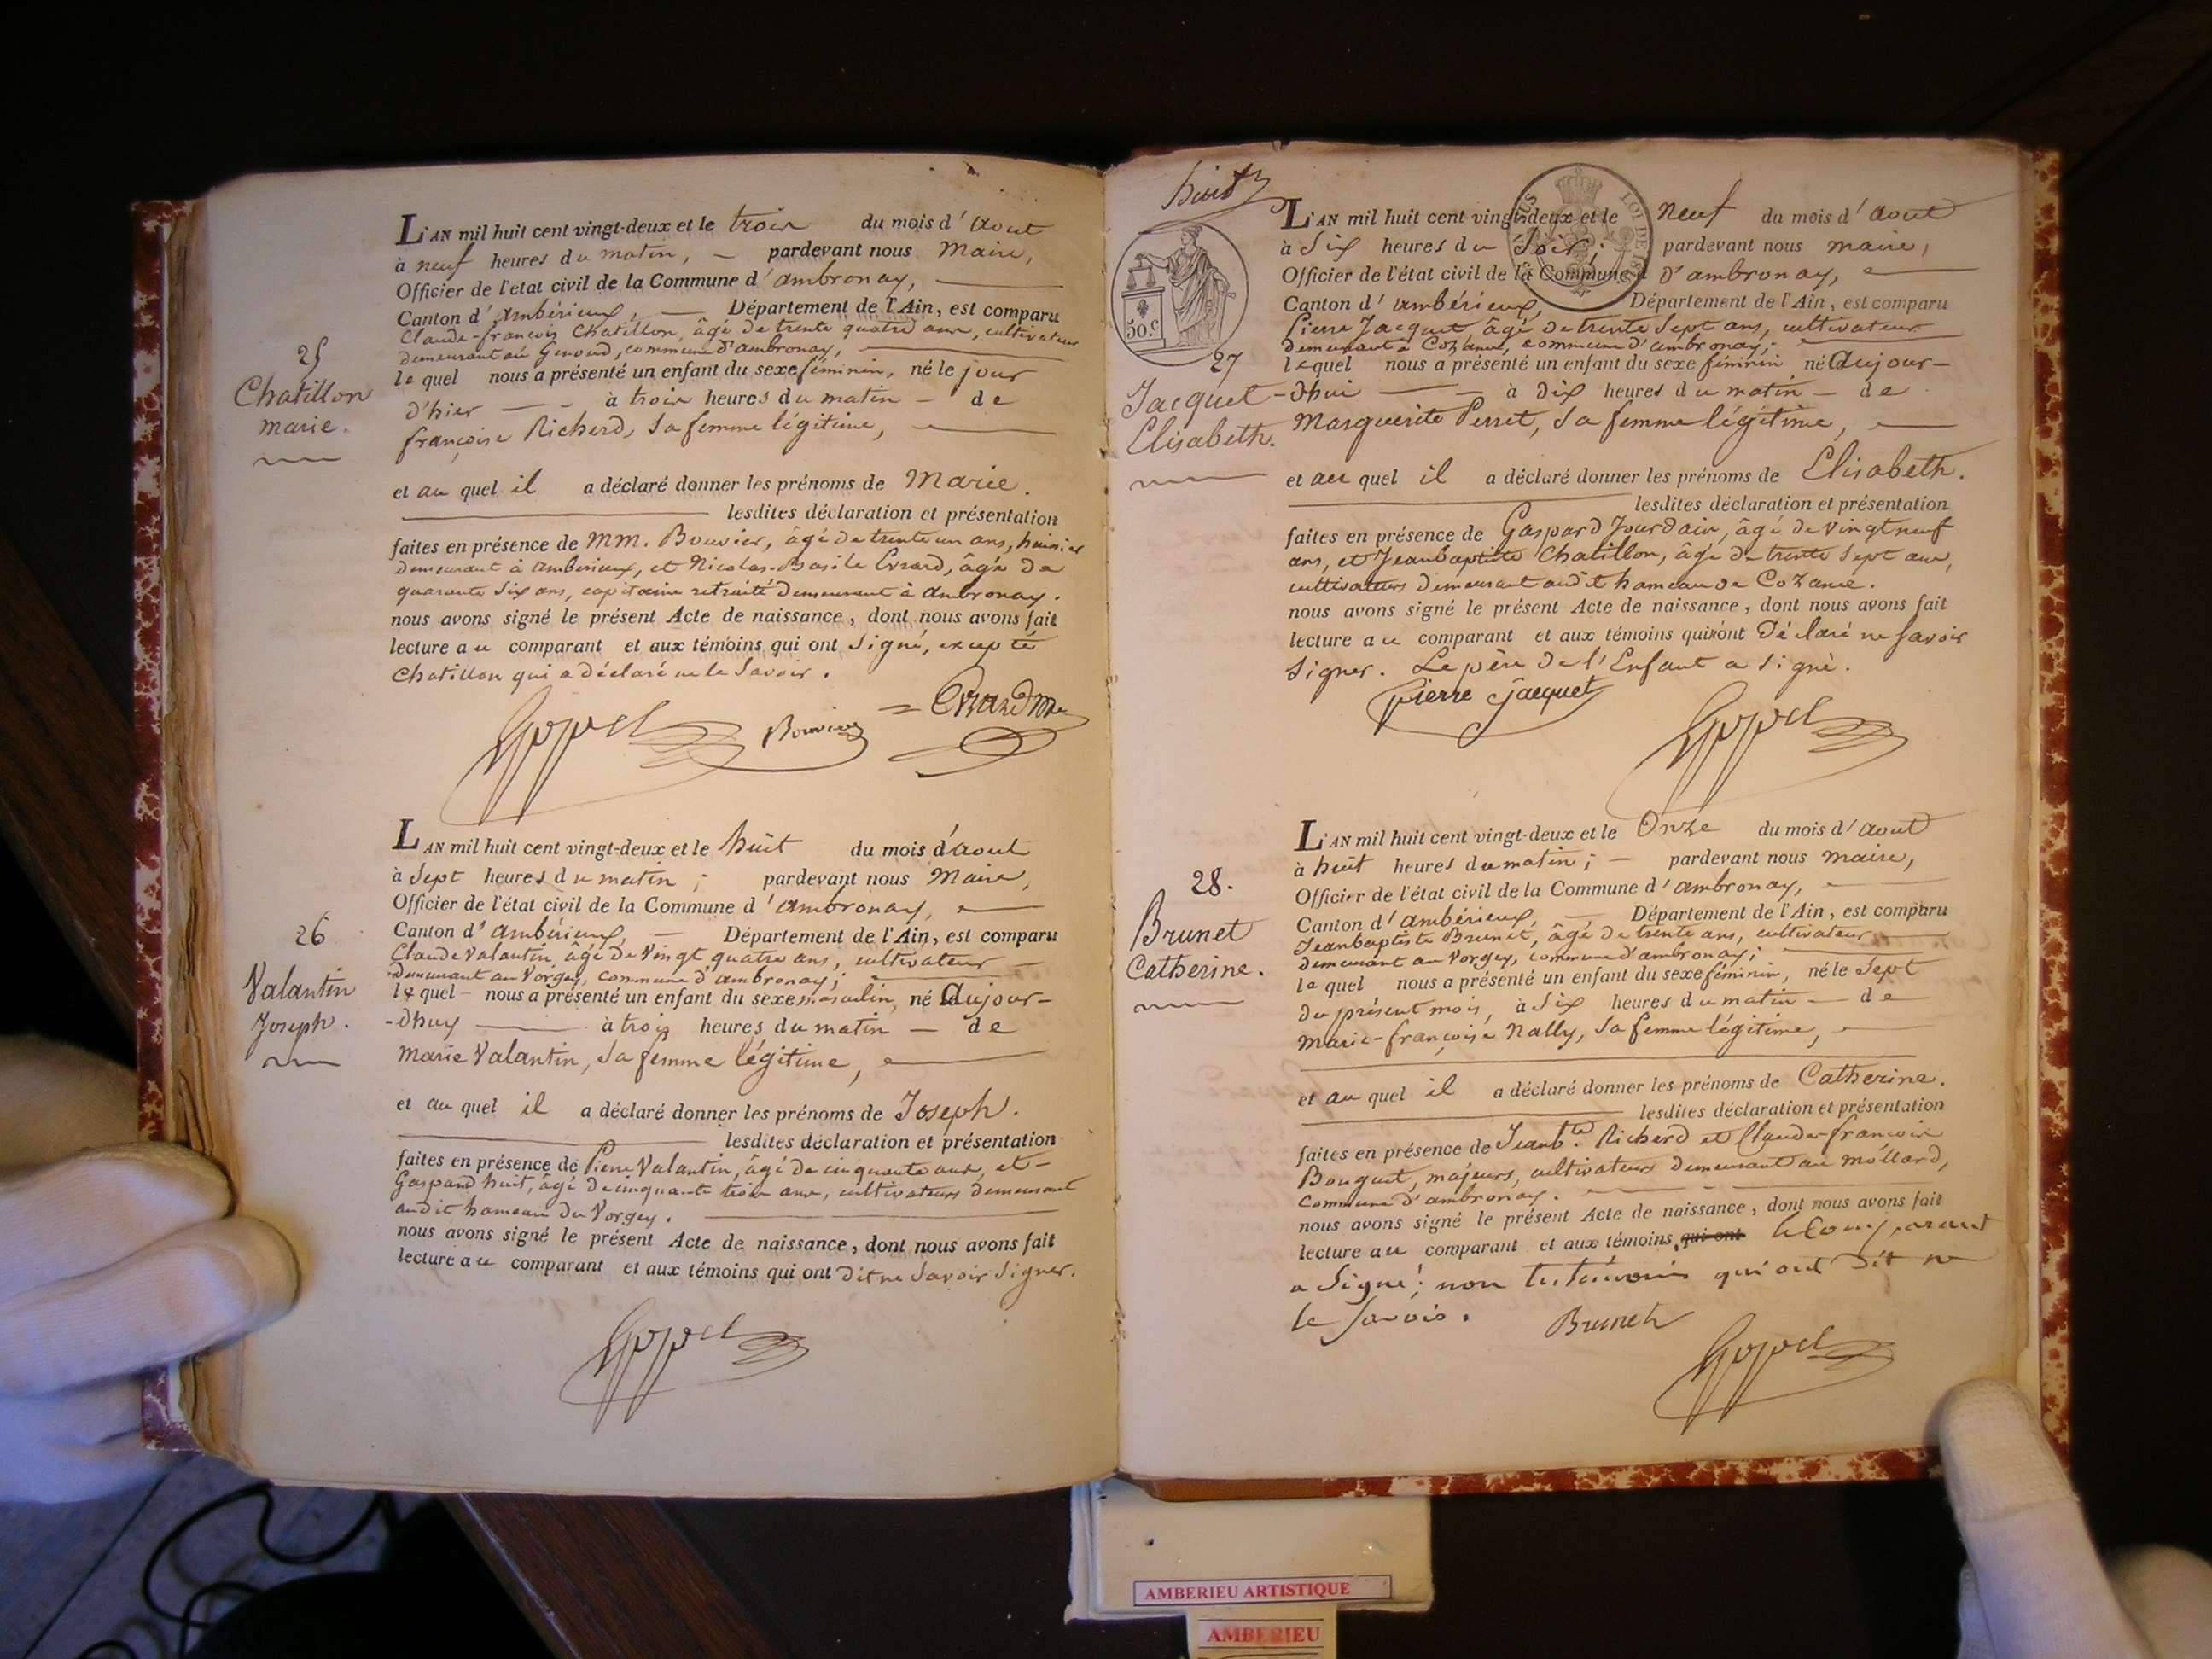 L'AN mil huit cent vingt-deux et le trois du mois d'Aout
à neuf heures du matin, pardevant nous Maire,
Officier de l'etat civil de la Commune d'ambronay,
Canton d'ambérieux, Département de l'Ain, est comparu
Claude-françois Chatillon, âgé de trente quatre ans, cultivateur
demeurant au Genoud, commune d'ambronay,
lequel nous a présenté un enfant du sexe féminin, né le jour
d'hier à trois heures du matin de
françoise Richerd, sa femme légitime,
et au quel il a déclaré donner les prénoms de Marie.
lesdites déclaration et présentation
faites en présence de MM. Bouvier, âgé de trente un ans, huissier
demeurant à ambérieux, et Nicolas-Basile Evrard, âgé de
quarante six ans, capitaine retraité demeurant à Ambronay.
nous avons signé le présent Acte de naissance, dont nous avons fait
lecture au comparant et aux témoins qui ont signé, excepté
Chatillon qui a déclaré ne le Savoir.
Bouvier
25
Chatillon
marie.
L'AN mil huit cent vingt-deux et le huit du mois d'aout
à sept heures du matin; pardevant nous Maire,
Officier de l'état civil de la Commune d'ambronay,
Canton d'ambérieux, Département de l'Ain, est comparu
Claude Valantin, âgé de vingt quatre ans, cultivateur
demeurant au Vorgey, commune d'ambronay;
lequel nous a présenté un enfant du sexe masculin, né Aujour-
-dhuy à trois heures du matin de
marie Valantin, sa femme légitime,
et au quel il a déclaré donner les prénoms de Joseph.
lesdites déclaration et présentation
faites en présence de Pierre Valantin, âgé de cinquante ans, et
Gaspard huit, âgé de cinquante trois ans, cultivateurs demeurant
audit hameau du Vorgey.
nous avons signé le présent Acte de naissance, dont nous avons fait
lecture au comparant et aux témoins qui ont dit ne savoir signer.
26
Valantin
Joseph.
huit
50.c
LOI DE
L'AN mil huit cent vingt-deux et le neuf du mois d'aout
à six heures du soir; pardevant nous maire,
Officier de l'état civil de la Commune d'ambronay,
Canton d'ambérieux, Département de l'Ain, est comparu
Pierre Jacquet âgé de trente sept ans, cultivateur
demeurant à Cozance, commune d'ambronay;
lequel nous a présenté un enfant du sexe féminin né Aujour-
-dhui à dix heures du matin de
Marguerite Perret, sa femme légitime,
et au quel il a déclaré donner les prénoms de Elisabeth.
lesdites déclaration et présentation
faites en présence de Gaspard Jourdain, âgé de vingt neuf
ans, et Jeanbaptiste Chatillon, âgé de trente sept ans,
cultivateurs demeurant audit hameau de Cozance.
nous avons signé le présent Acte de naissance, dont nous avons fait
lecture au comparant et aux témoins qui ont déclaré ne savoir
signer. Le père de l'Enfant a signé.
Pierre Jacquet
27
Jacquet
Elisabeth.
L'AN mil huit cent vingt-deux et le Onze du mois d'aout
à huit heures du matin; pardevant nous maire,
Officier de l'état civil de la Commune d'ambronay,
Canton d'ambérieux, Département de l'Ain, est comparu
Jeanbaptiste Brunet, âgé de trente ans, cultivateur
demeurant au Vorgey, commune d'ambronay;
lequel nous a présenté un enfant du sexe féminin, né le sept
du présent mois, à six heures du matin de
Marie-françoise Nally, sa femme légitime,
et au quel il a déclaré donner les prénoms de Catherine.
lesdites déclaration et présentation
faites en présence de Jeanb.te Richerd et Claude-françois
Bouquet, majeurs, cultivateurs demeurant au mollard,
commune d'ambronay.
nous avons signé le présent Acte de naissance, dont nous avons fait
lecture au comparant et aux témoins, qui ont le Comparant
a signé; non les témoins qui ont dit ne
le savoir.
Brunet
28.
Brunet
Catherine.
AMBERIEU ARTISTIQUE
AMBERIEU